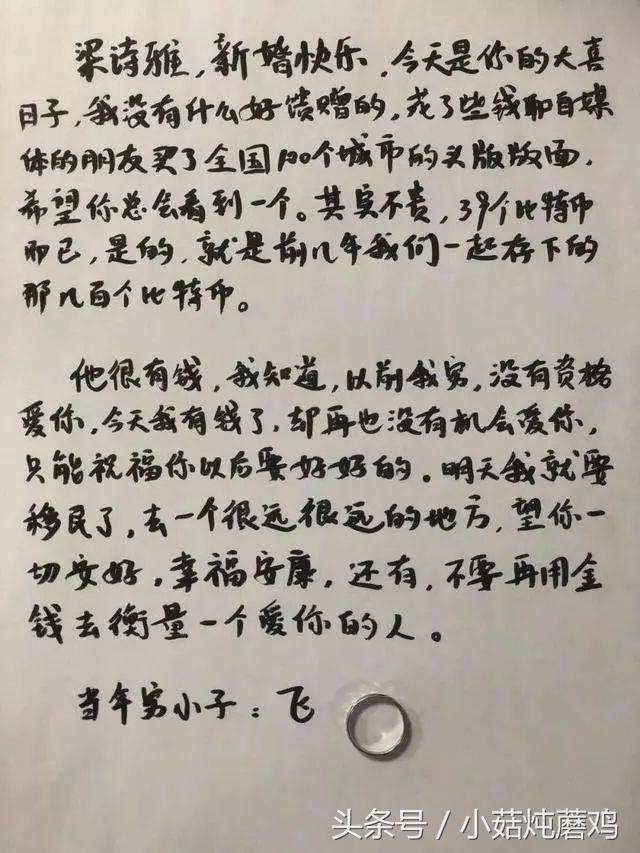 梁诗雅，新婚快乐，今天是你的大喜
日子，我没有什么好馈赠的，花了些钱和自媒
体的朋友买了全国100个城市的头版版面，
希望你总会看到一个。其实不贵，39个比特币
而已，是的，就是前几年我们一起存下的
那几百个比特币。
他很有钱，我知道，以前我穷，没有资格
爱你，今天我有钱了，却再也没有机会爱你，
只能祝福你以后要好好的。明天我就要
移民了，去一个很远很远的地方，望你一
切安好，幸福安康，还有，不要再用金
钱去衡量一个爱你的人。
当年穷小子：飞
头条号 / 小菇炖蘑鸡